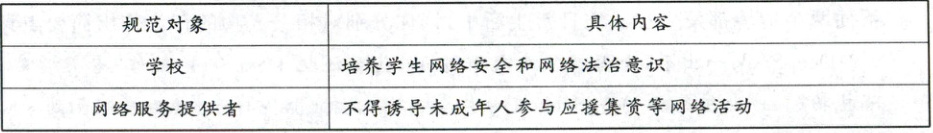 规范对象 具体内容
学校 培养学生网络安全和网络法治意识
网络服务提供者 不得诱导未成年人参与应援集资等网络活动